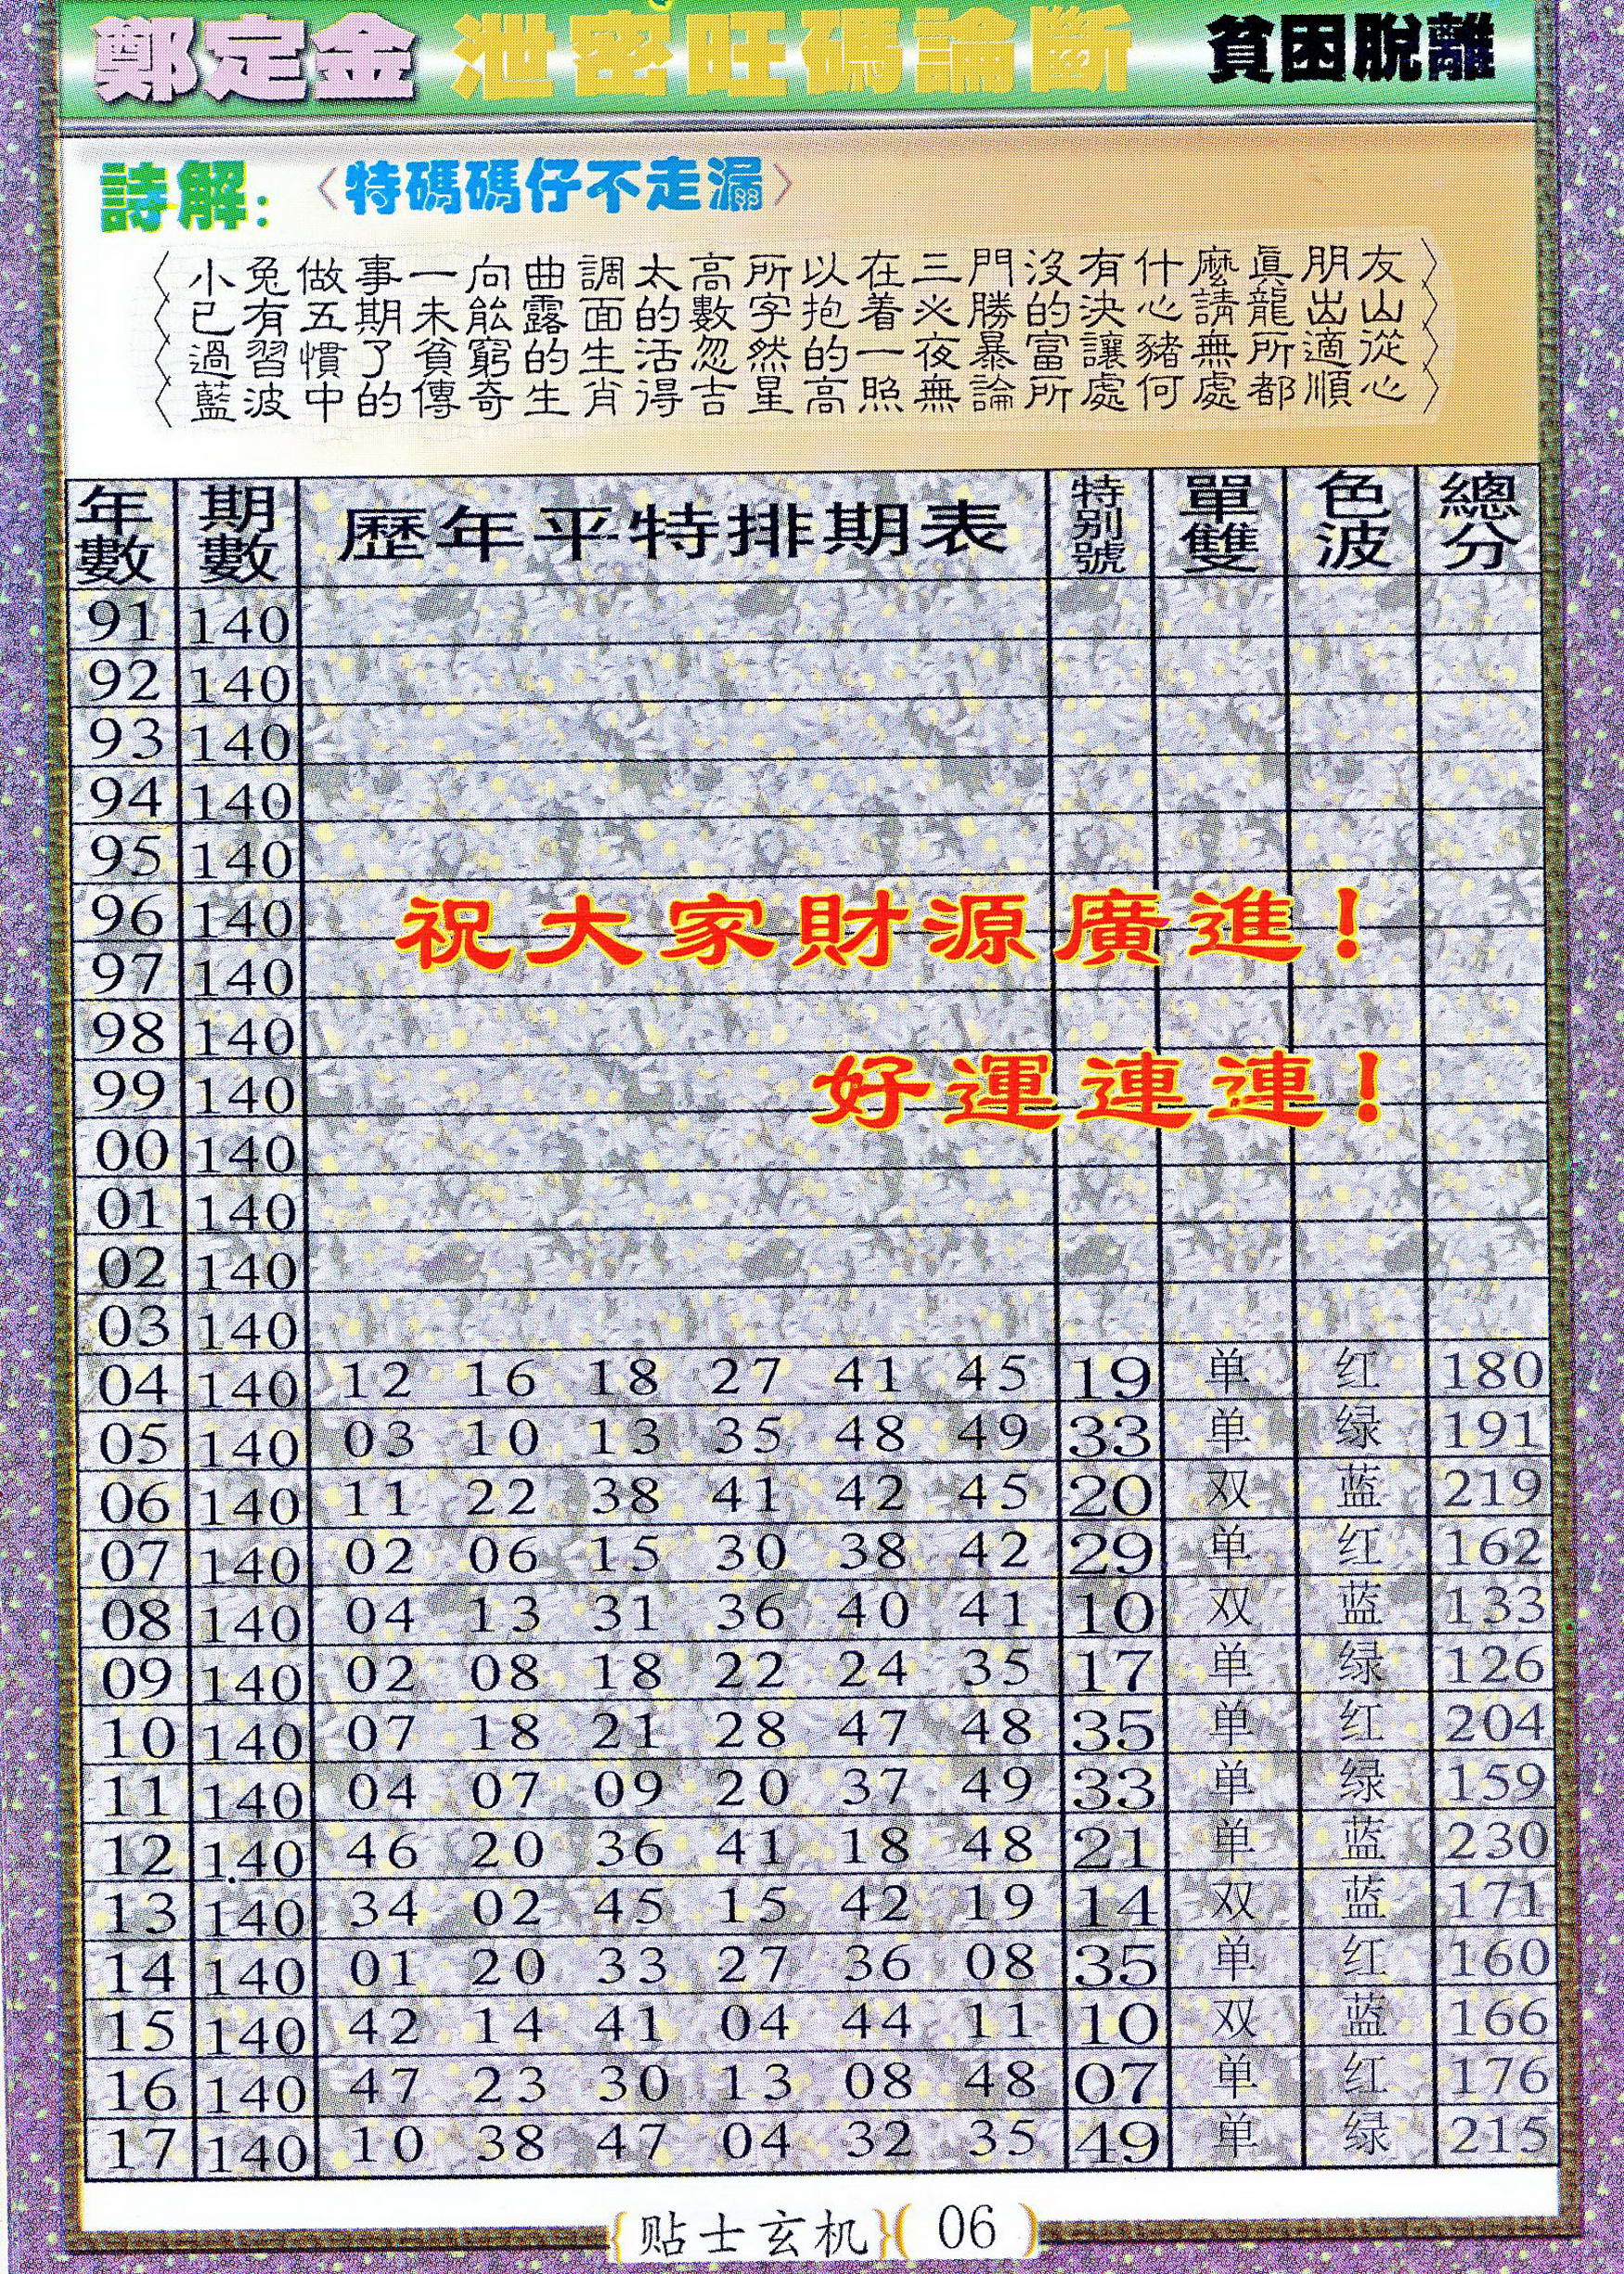 鄭定金 泄密旺碼論斷 貧困脫離
詩解：〈特碼碼仔不走漏〉
〈小兔做事一向曲調太高所以在三門沒有什麼眞朋友〉
〈已有五期未能露面的數字抱着必勝的決心請龍出山〉
〈過習慣了貧窮的生活忽然的一夜暴富讓豬無所適從〉
〈藍波中的傳奇生肖得吉星高照無論所處何處都順心〉
年數 期數 歷年平特排期表 特别號 單雙 色波 總分
91 140
92 140
93 140
94 140
95 140
96 140
祝大家財源廣進！
97 140
98 140
99 140
好運連連！
00 140
01 140
02 140
03 140
04 140 12 16 18 27 41 45 19 单 红 180
05 140 03 10 13 35 48 49 33 单 绿 191
06 140 11 22 38 41 42 45 20 双 蓝 219
07 140 02 06 15 30 38 42 29 单 红 162
08 140 04 13 31 36 40 41 10 双 蓝 133
09 140 02 08 18 22 24 35 17 单 绿 126
10 140 07 18 21 28 47 48 35 单 红 204
11 140 04 07 09 20 37 49 33 单 绿 159
12 140 46 20 36 41 18 48 21 单 蓝 230
13 140 34 02 45 15 42 19 14 双 蓝 171
14 140 01 20 33 27 36 08 35 单 红 160
15 140 42 14 41 04 44 11 10 双 蓝 166
16 140 47 23 30 13 08 48 07 单 红 176
17 140 10 38 47 04 32 35 49 单 绿 215
{贴士玄机}(06)